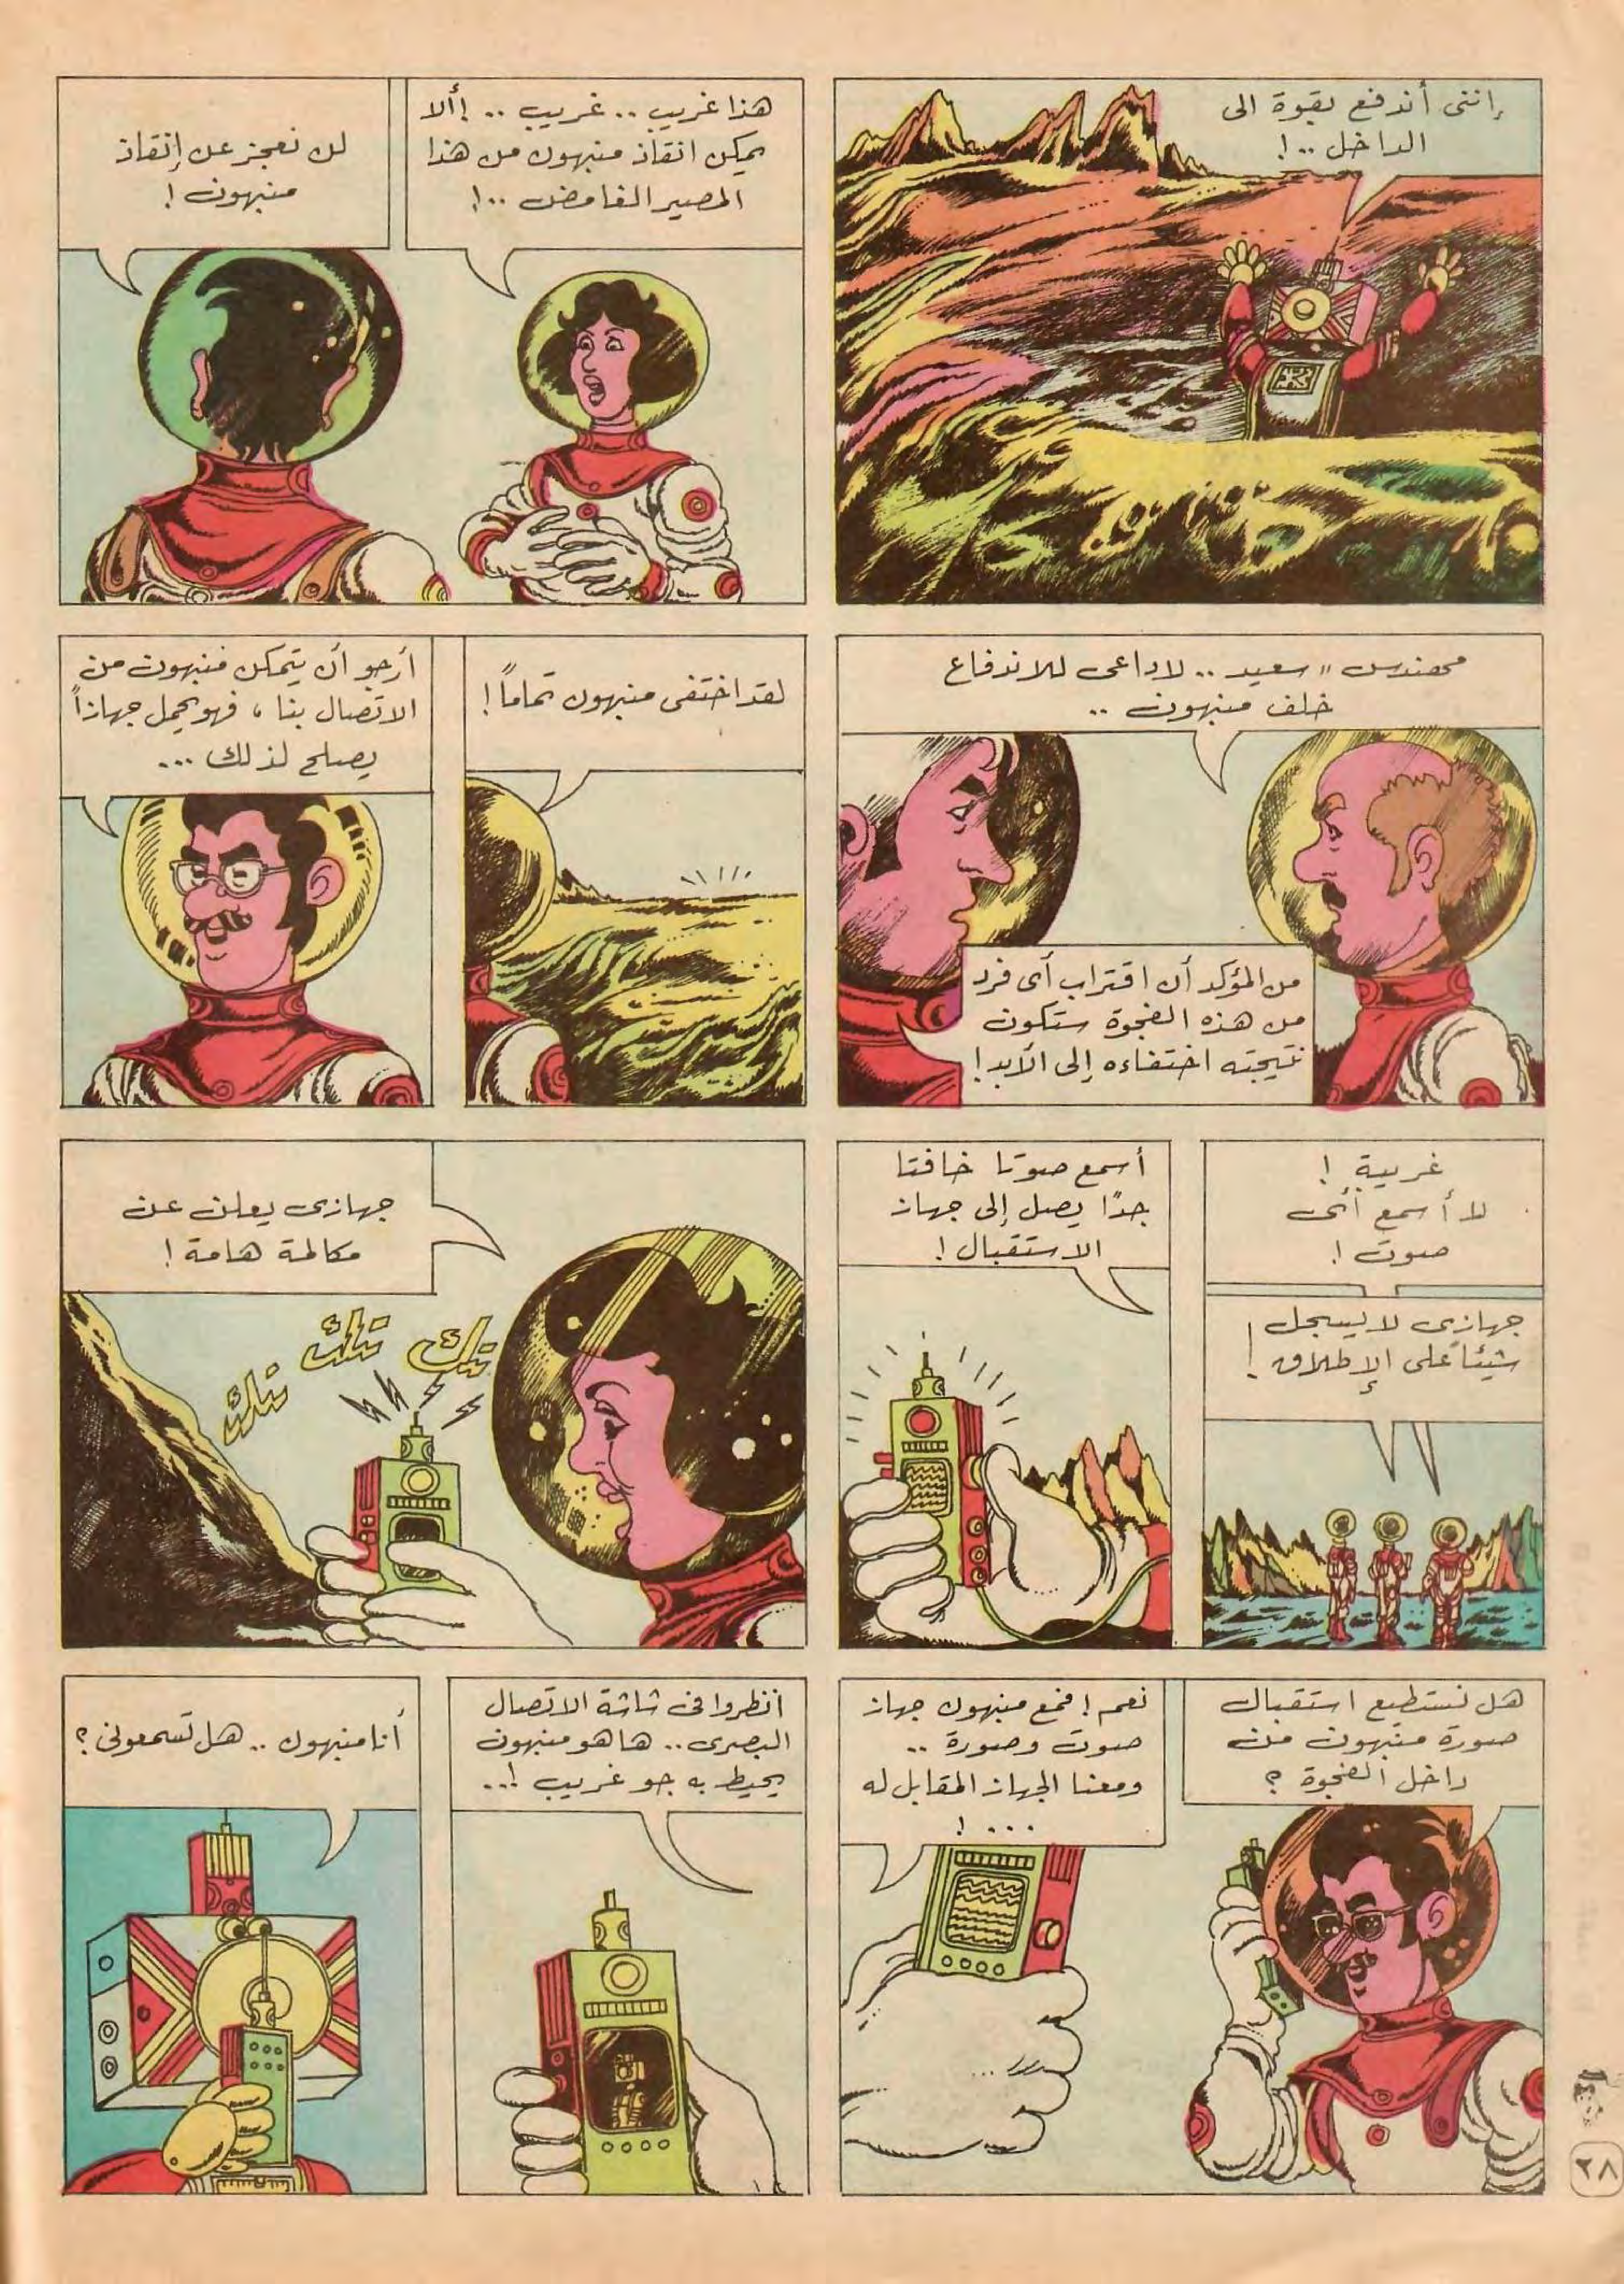 إننى أندفع بقوة الى
الداخل ..!
هذا غريب .. غريب .. !ألا
يمكن انقاذ منبهون من هذا
المصير الغامض ..!
لن نعجز عن إنقاذ
منبهون !
مهندس " سعيد .. لا داعى للاندفاع
خلف منبهون ..
من المؤكد أن اقتراب أى فرد
من هذه الفجوة ستكون
نتيجته اختفاءه إلى الأبد !
لقد اختفى منبهون تماماً !
أرجو أن يتمكن منبهون من
الاتصال بنا ، فهو يحمل جهازاً
يصلح لذلك ...
غريبة !
لا أسمع أى
صوت !
جهازى لا يسجل
شيئاً على الإطلاق !
أسمع صوتا خافتا
جدًا يصل إلى جهاز
الاستقبال !
جهازى يعلن عن
مكالمة هامة !
تيك
تك
تك
هل نستطيع استقبال
صورة منبهون من
داخل الفجوة ؟
نعم ! فمع منبهون جهاز
صوت وصورة ..
ومعنا الجهاز المقابل له
... !
انظروا فى شاشة الاتصال
البصرى .. ها هو منبهون
يحيط به جو غريب !..
أنا منبهون .. هل تسمعونى ؟
٢٨